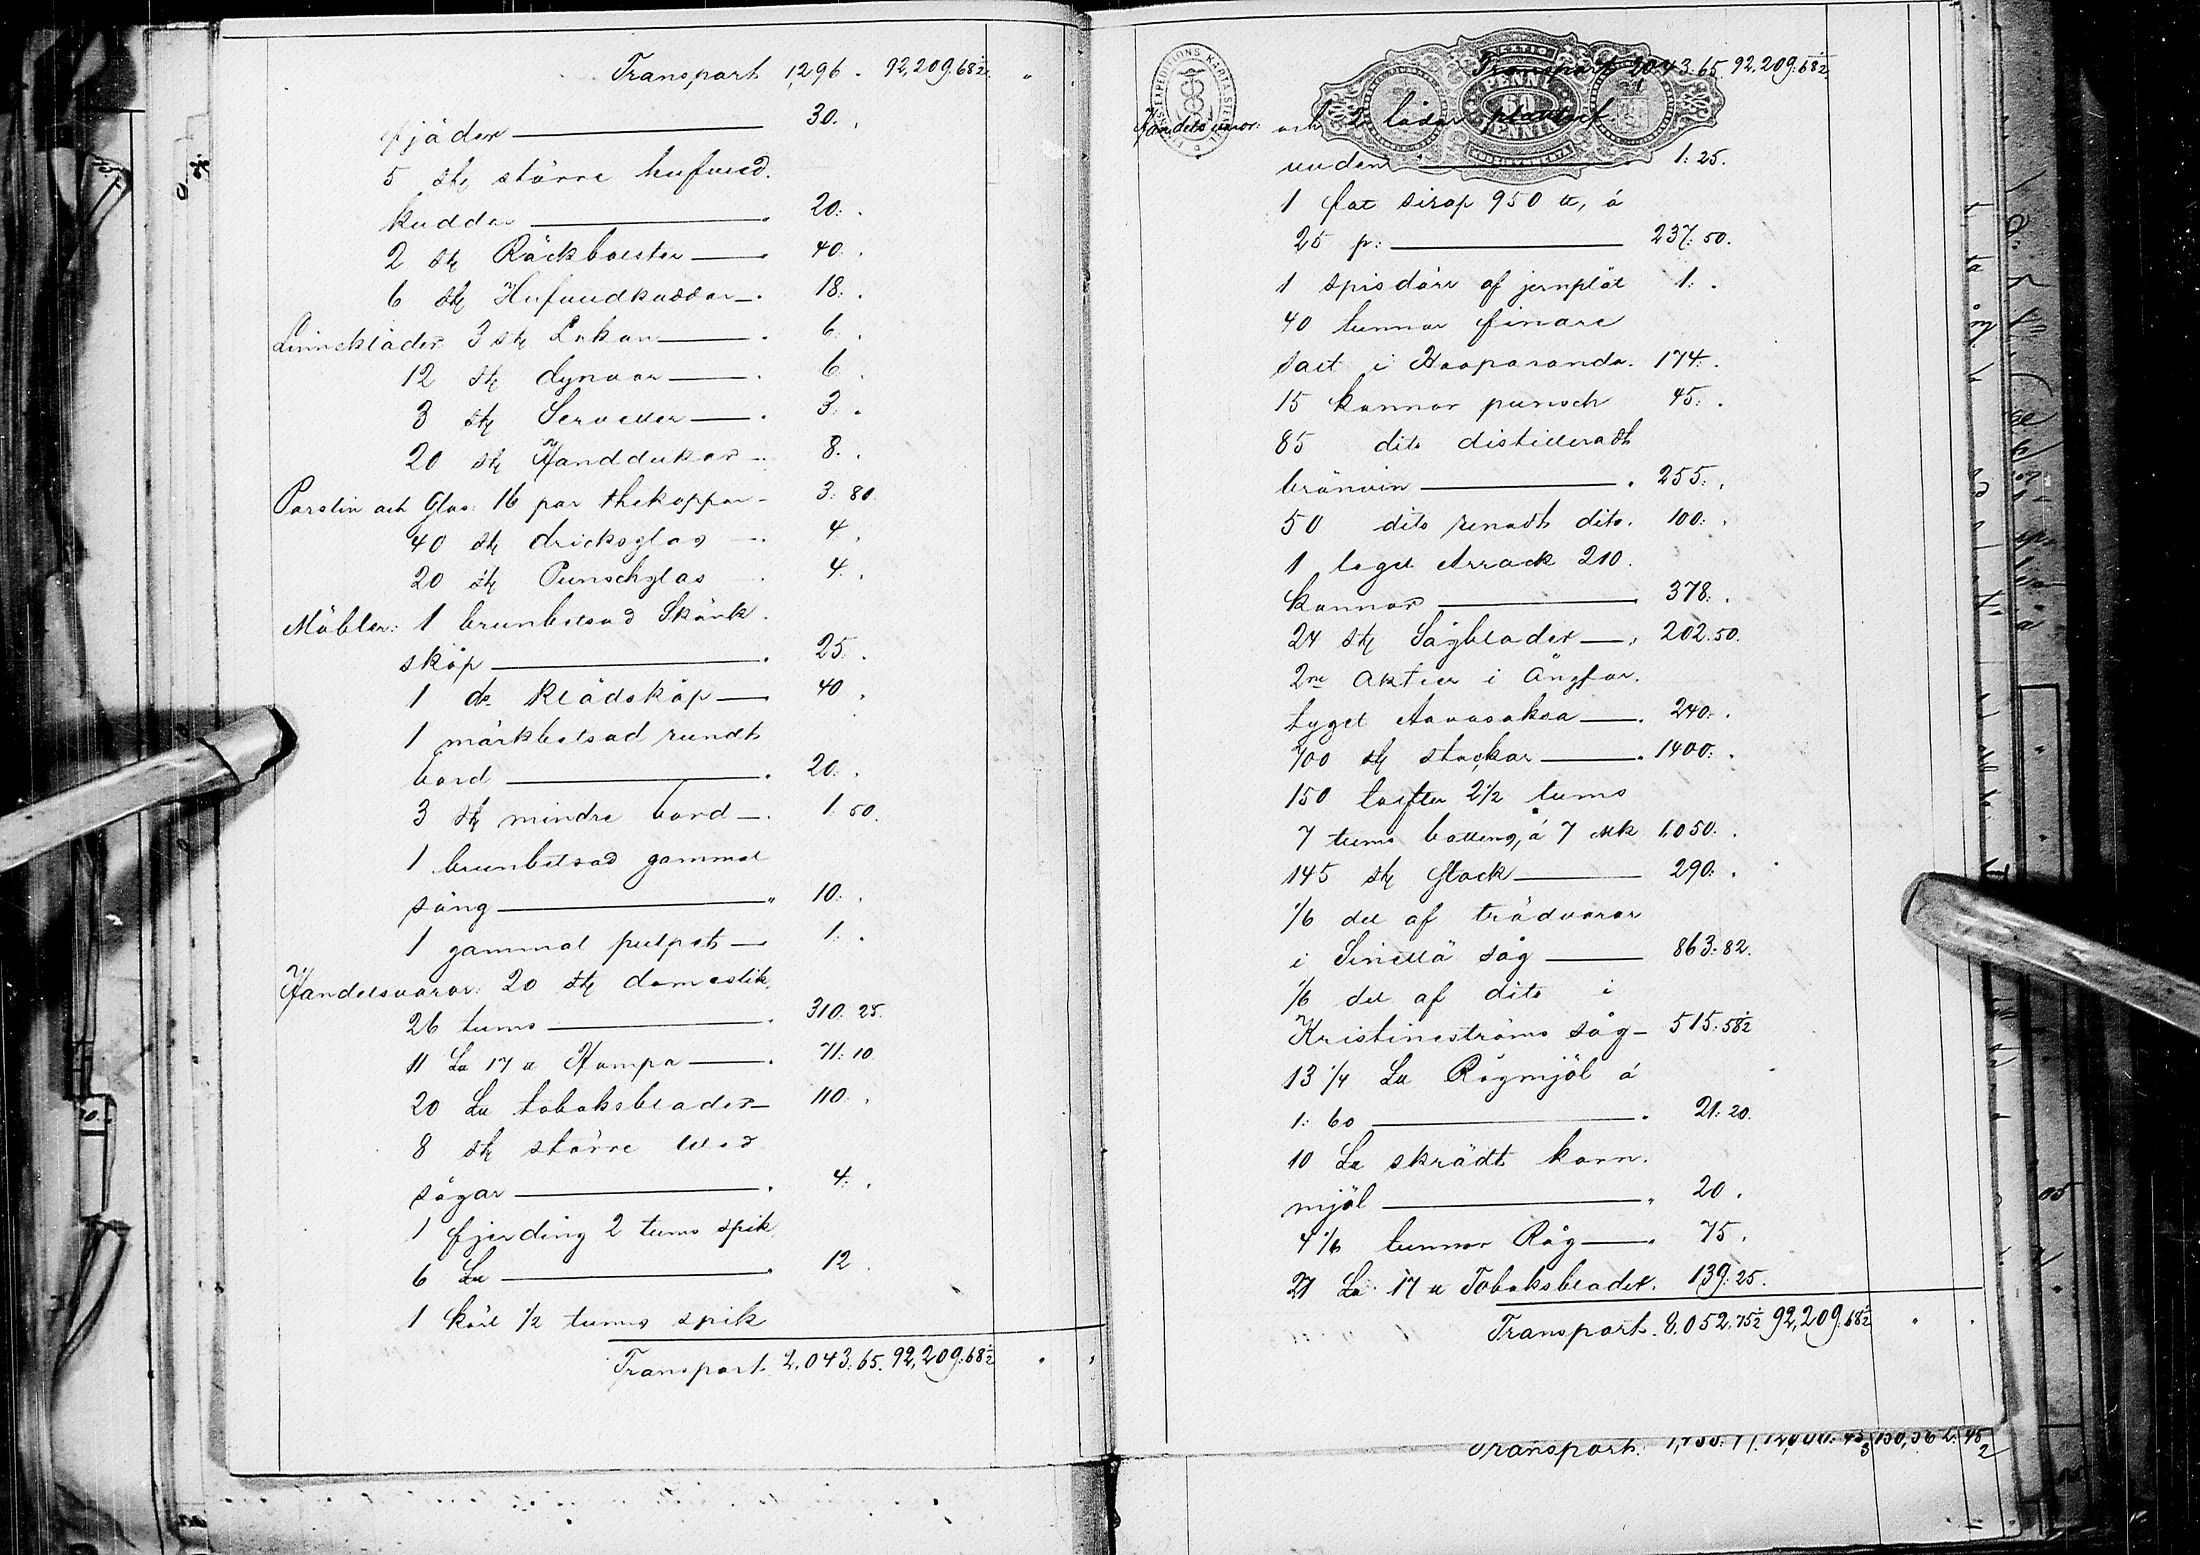 Transport 1,296. 92,209.68½
fjäder 30.
5 st. större hufvud-
kuddar 20:
2 st. Räckbolster 40.
6 st. Hufvudkuddar 18:
Linnekläder 3 st. Lakan 6.
12 st. dynvar 6.
3 st. Servetter 3:
20 st. Handdukar 8.
Porslin och Glas: 16 par thekoppar 3:80.
40 st. dricksglas 4.
20 st. Punschglas 4.
Möbler: 1 brunbetsad Skänk-
skåp 25.
1 do Klädskåp 40.
1 mörkbetsad rundt
bord 20:
3 st. mindre bord 1.50.
1 brunbetsad gammal
säng 10:
1 gammal pulpet 1:
Handelsvaror: 20 st. domestik,
26 tums 310.25.
11 L℔ 17 ℔ Hampa 71:10.
20 L℔ tobaksblader 110.
8 st. större ved-
sågar 4:
1 fjerding 2 tums spik
6 L℔ 12.
1 kärl ½ tums spik
Transport 2,043:65. 92,209:68½
Transport 2043.65. 92,209:68½
Handelsvaror: och 2 lådor
1:25.
1 fat sirap 950 ℔, á
25 p: 237:50.
1 spisdörr af jernplåt 1:
40 tunnor finare
salt i Haaparanda. 174.
15 kannor punsch 45:
85 dito distilleradt
bränvin 255:
50 dito renadt dito. 100:
1 lagel Arrack 210.
kannor 378:
24 st. Sågblader 202.50.
2ne Aktier i Ångfar-
tyget Aavasaksa 240:
700 st. stockar 1400:
150 tolfter 2½ tums
7 tums battens, á 7 Mk 1,050:
145 st. Stock 290:
1/6 del af trädvaror
i Sinettä såg 863:82.
1/6 del af dito i
Kristineströms såg 515:58½
13 ¼ L℔ Rågmjöl á
1:60 21:20.
10 L℔ skrädt korn-
mjöl 20.
4 1/6 tunnor Råg 75.
21 L℔ 17 ℔ Tobaksblader. 139:25.
Transport. 8,052.75½ 92,209.68½
Transport: